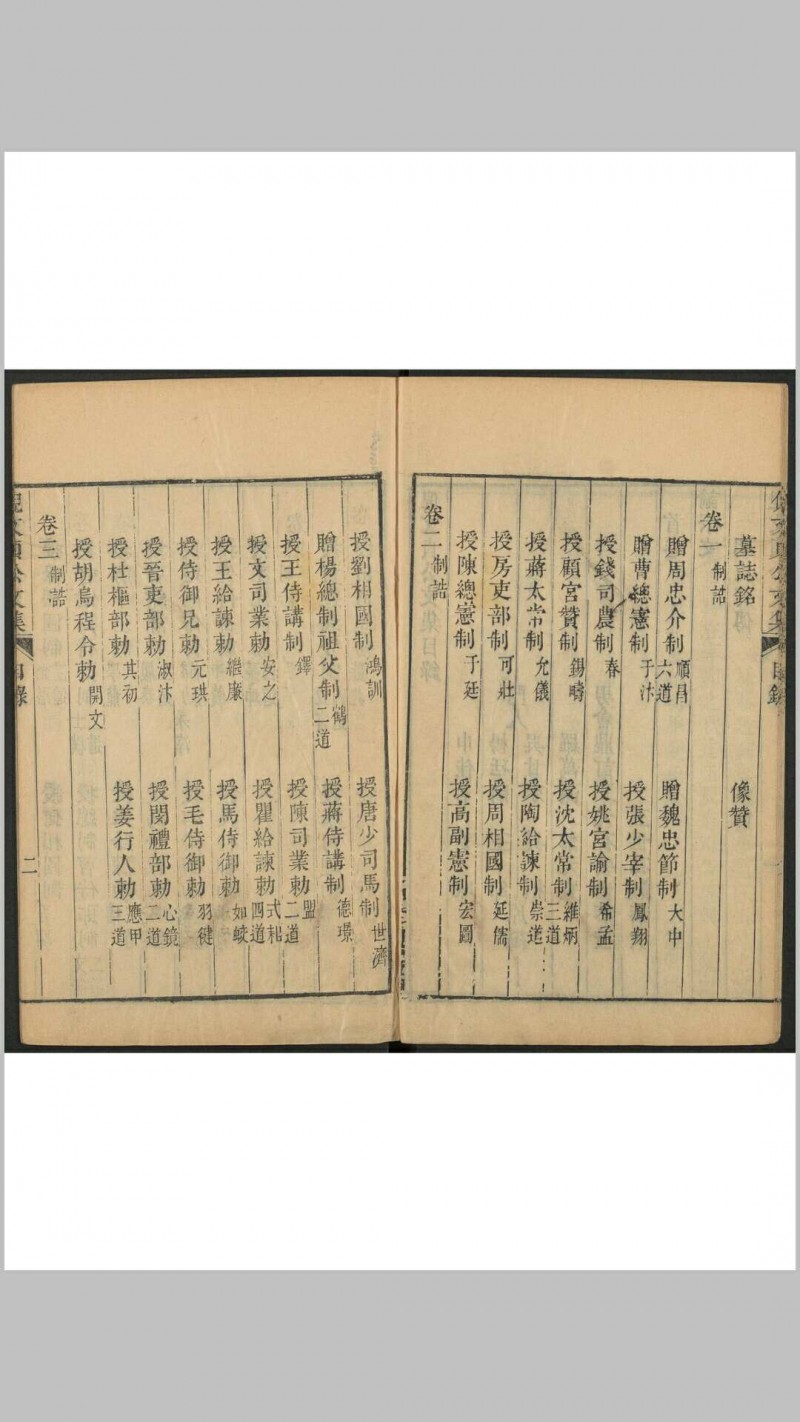 墓誌銘 像贊
卷一 制誥
贈周忠介制 順昌 六道 贈魏忠節制 大中
贈曹總憲制 于汴 授張少宰制 鳳翔
授錢司農制 春 授姚宮諭制 希孟
授顧宮贊制 錫疇 授沈太常制 維炳 三道
授蔣太常制 允儀 授陶給諫制 崇道
授房吏部制 可壯 授周相國制 延儒
授陳總憲制 于廷 授高副憲制 宏圖
卷二 制誥
授劉相國制 鴻訓 授唐少司馬制 世濟
贈楊總制祖父制 鶴 二道 授蔣侍講制 德璟
授王侍講制 鐸 授陳司業勅 盟 二道
授文司業勅 安之 授瞿給諫勅 式耜 四道
授王給諫勅 繼廉 授馬侍御勅 如蛟
授侍御兄勅 元珙 授毛侍御勅 羽健
授晉吏部勅 淑汴 授閔禮部勅 心鏡 二道
授杜樞部勅 其初 授姜行人勅 應甲 三道
授胡烏程令勅 開文
卷三 制誥
文貞公文集 目錄 二